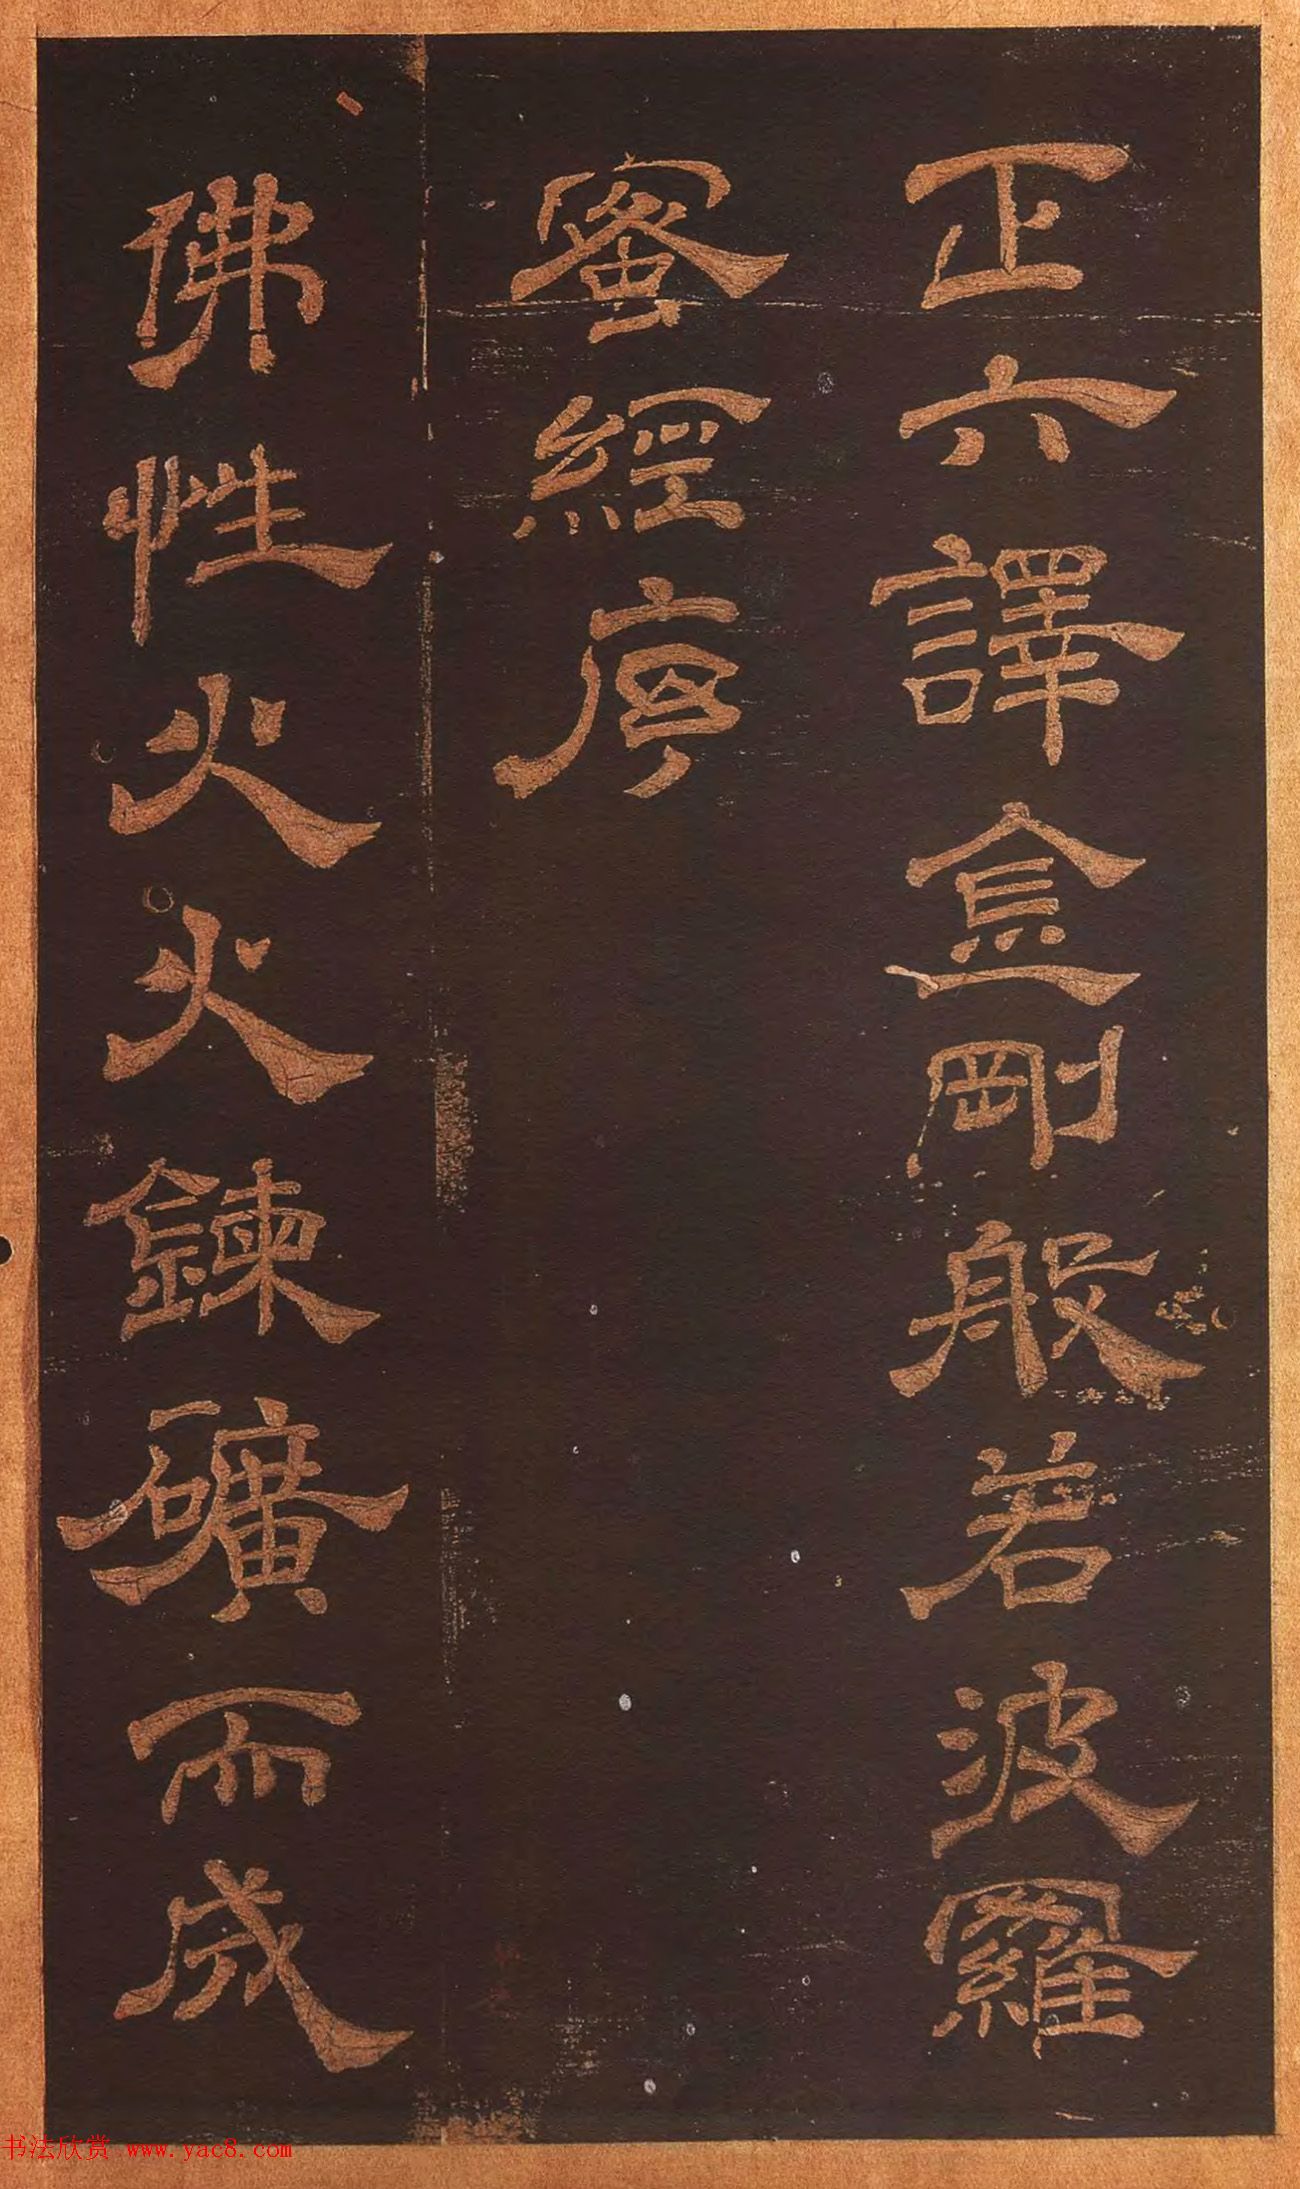 正六譯金剛般若波羅
蜜經序
佛性火火鍊礦而成
书法欣赏 www.yac8.com